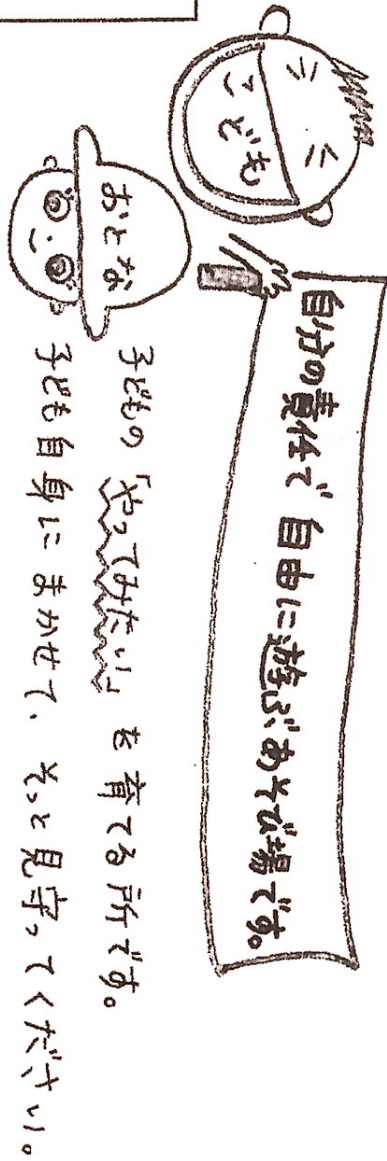 こども
自分の責任で 自由に遊ぶあそび場です。
おとな
子どもの「やってみたい」を育てる所です。
子ども自身にまかせて、そっと見守ってください。